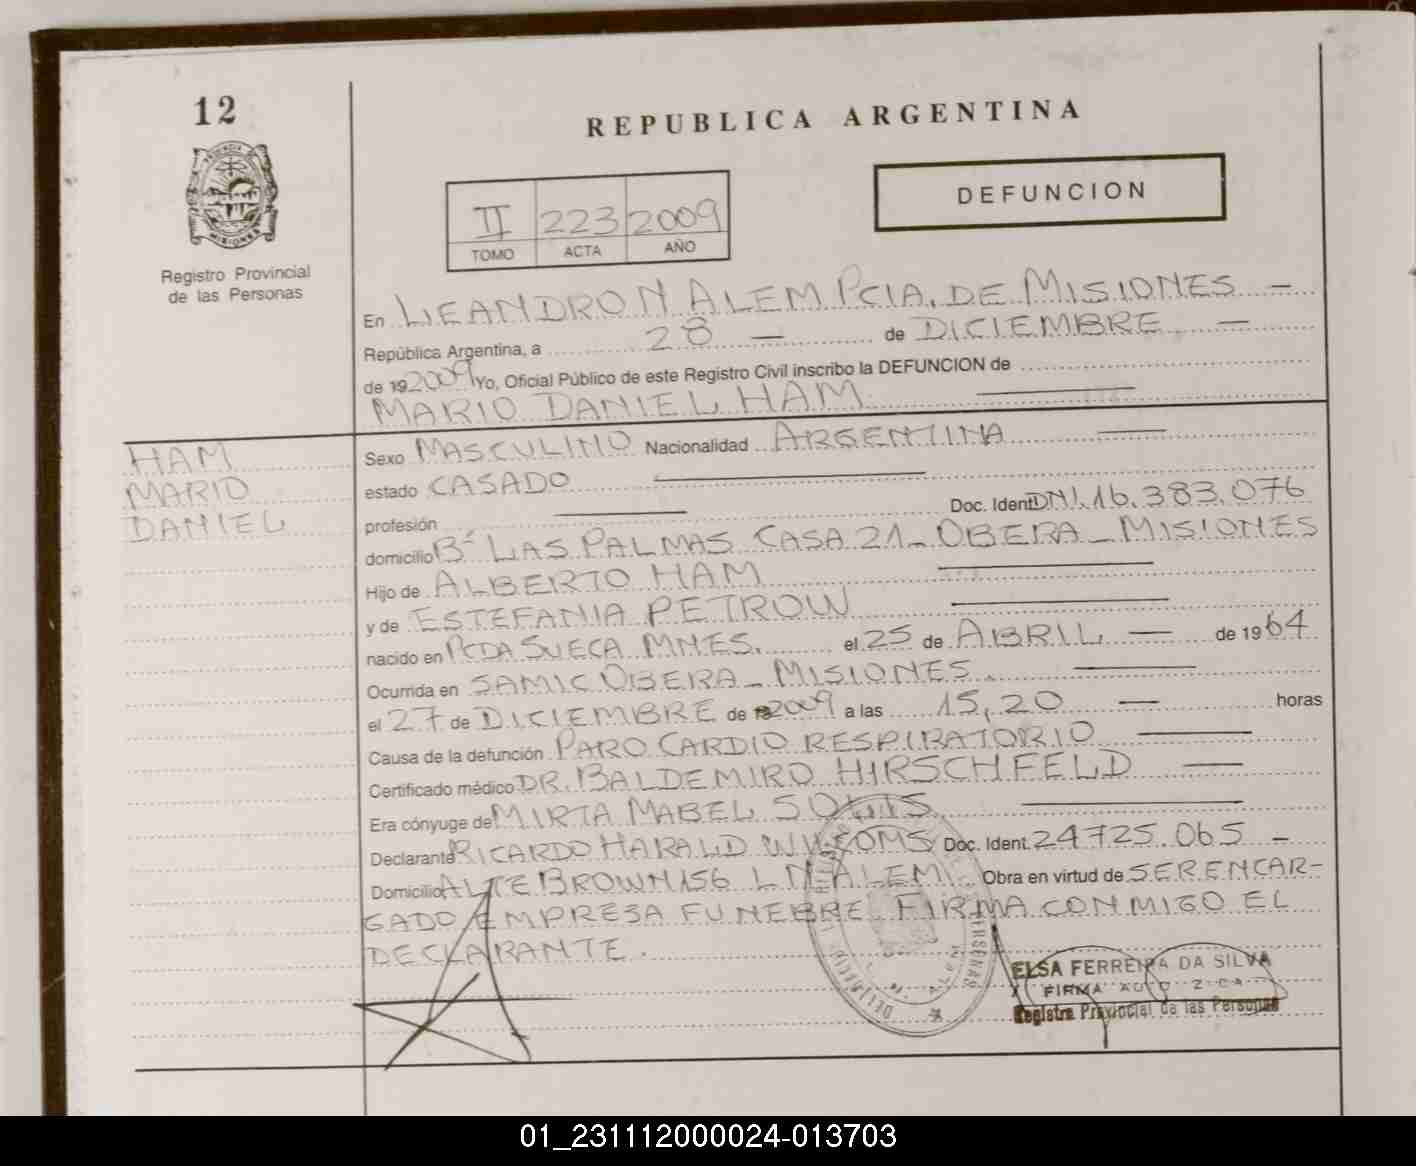 12
PROVINCIA
MISIONES
Registro Provincial
de las Personas
REPUBLICA ARGENTINA
DEFUNCION
II 223 2009
TOMO ACTA AÑO
En LEANDRO N ALEM PCIA. DE MISIONES —
República Argentina, a 28 — de DICIEMBRE —
de 19 2009 Yo, Oficial Público de este Registro Civil inscribo la DEFUNCION de
MARIO DANIEL HAM
HAM
MARIO
DANIEL
Sexo MASCULINO Nacionalidad ARGENTINA
estado CASADO
profesión Doc. Ident DNI. 16.383.076
domicilio Bº LAS PALMAS CASA 21 - OBERA - MISIONES
Hijo de ALBERTO HAM
y de ESTEFANIA PETROW
nacido en PCDA SUECA MNES. el 25 de ABRIL — de 1964
Ocurrida en SAMIC OBERA - MISIONES
el 27 de DICIEMBRE de 2009 a las 15,20 — horas
Causa de la defunción PARO CARDIO RESPIRATORIO
Certificado médico DR. BALDEMIRO HIRSCHFELD —
Era cónyuge de MIRTA MABEL
Declarante RICARDO HARALD Doc. Ident. 24725.065 -
Domicilio ALTE BROWN 156 L N ALEM. Obra en virtud de SER ENCAR-
GADO EMPRESA FUNEBRE FIRMA CONMIGO EL
DECLARANTE.
ELSA FERREIRA DA SILVA
FIRMA
Registro Provincial de las Personas
01_231112000024-013703